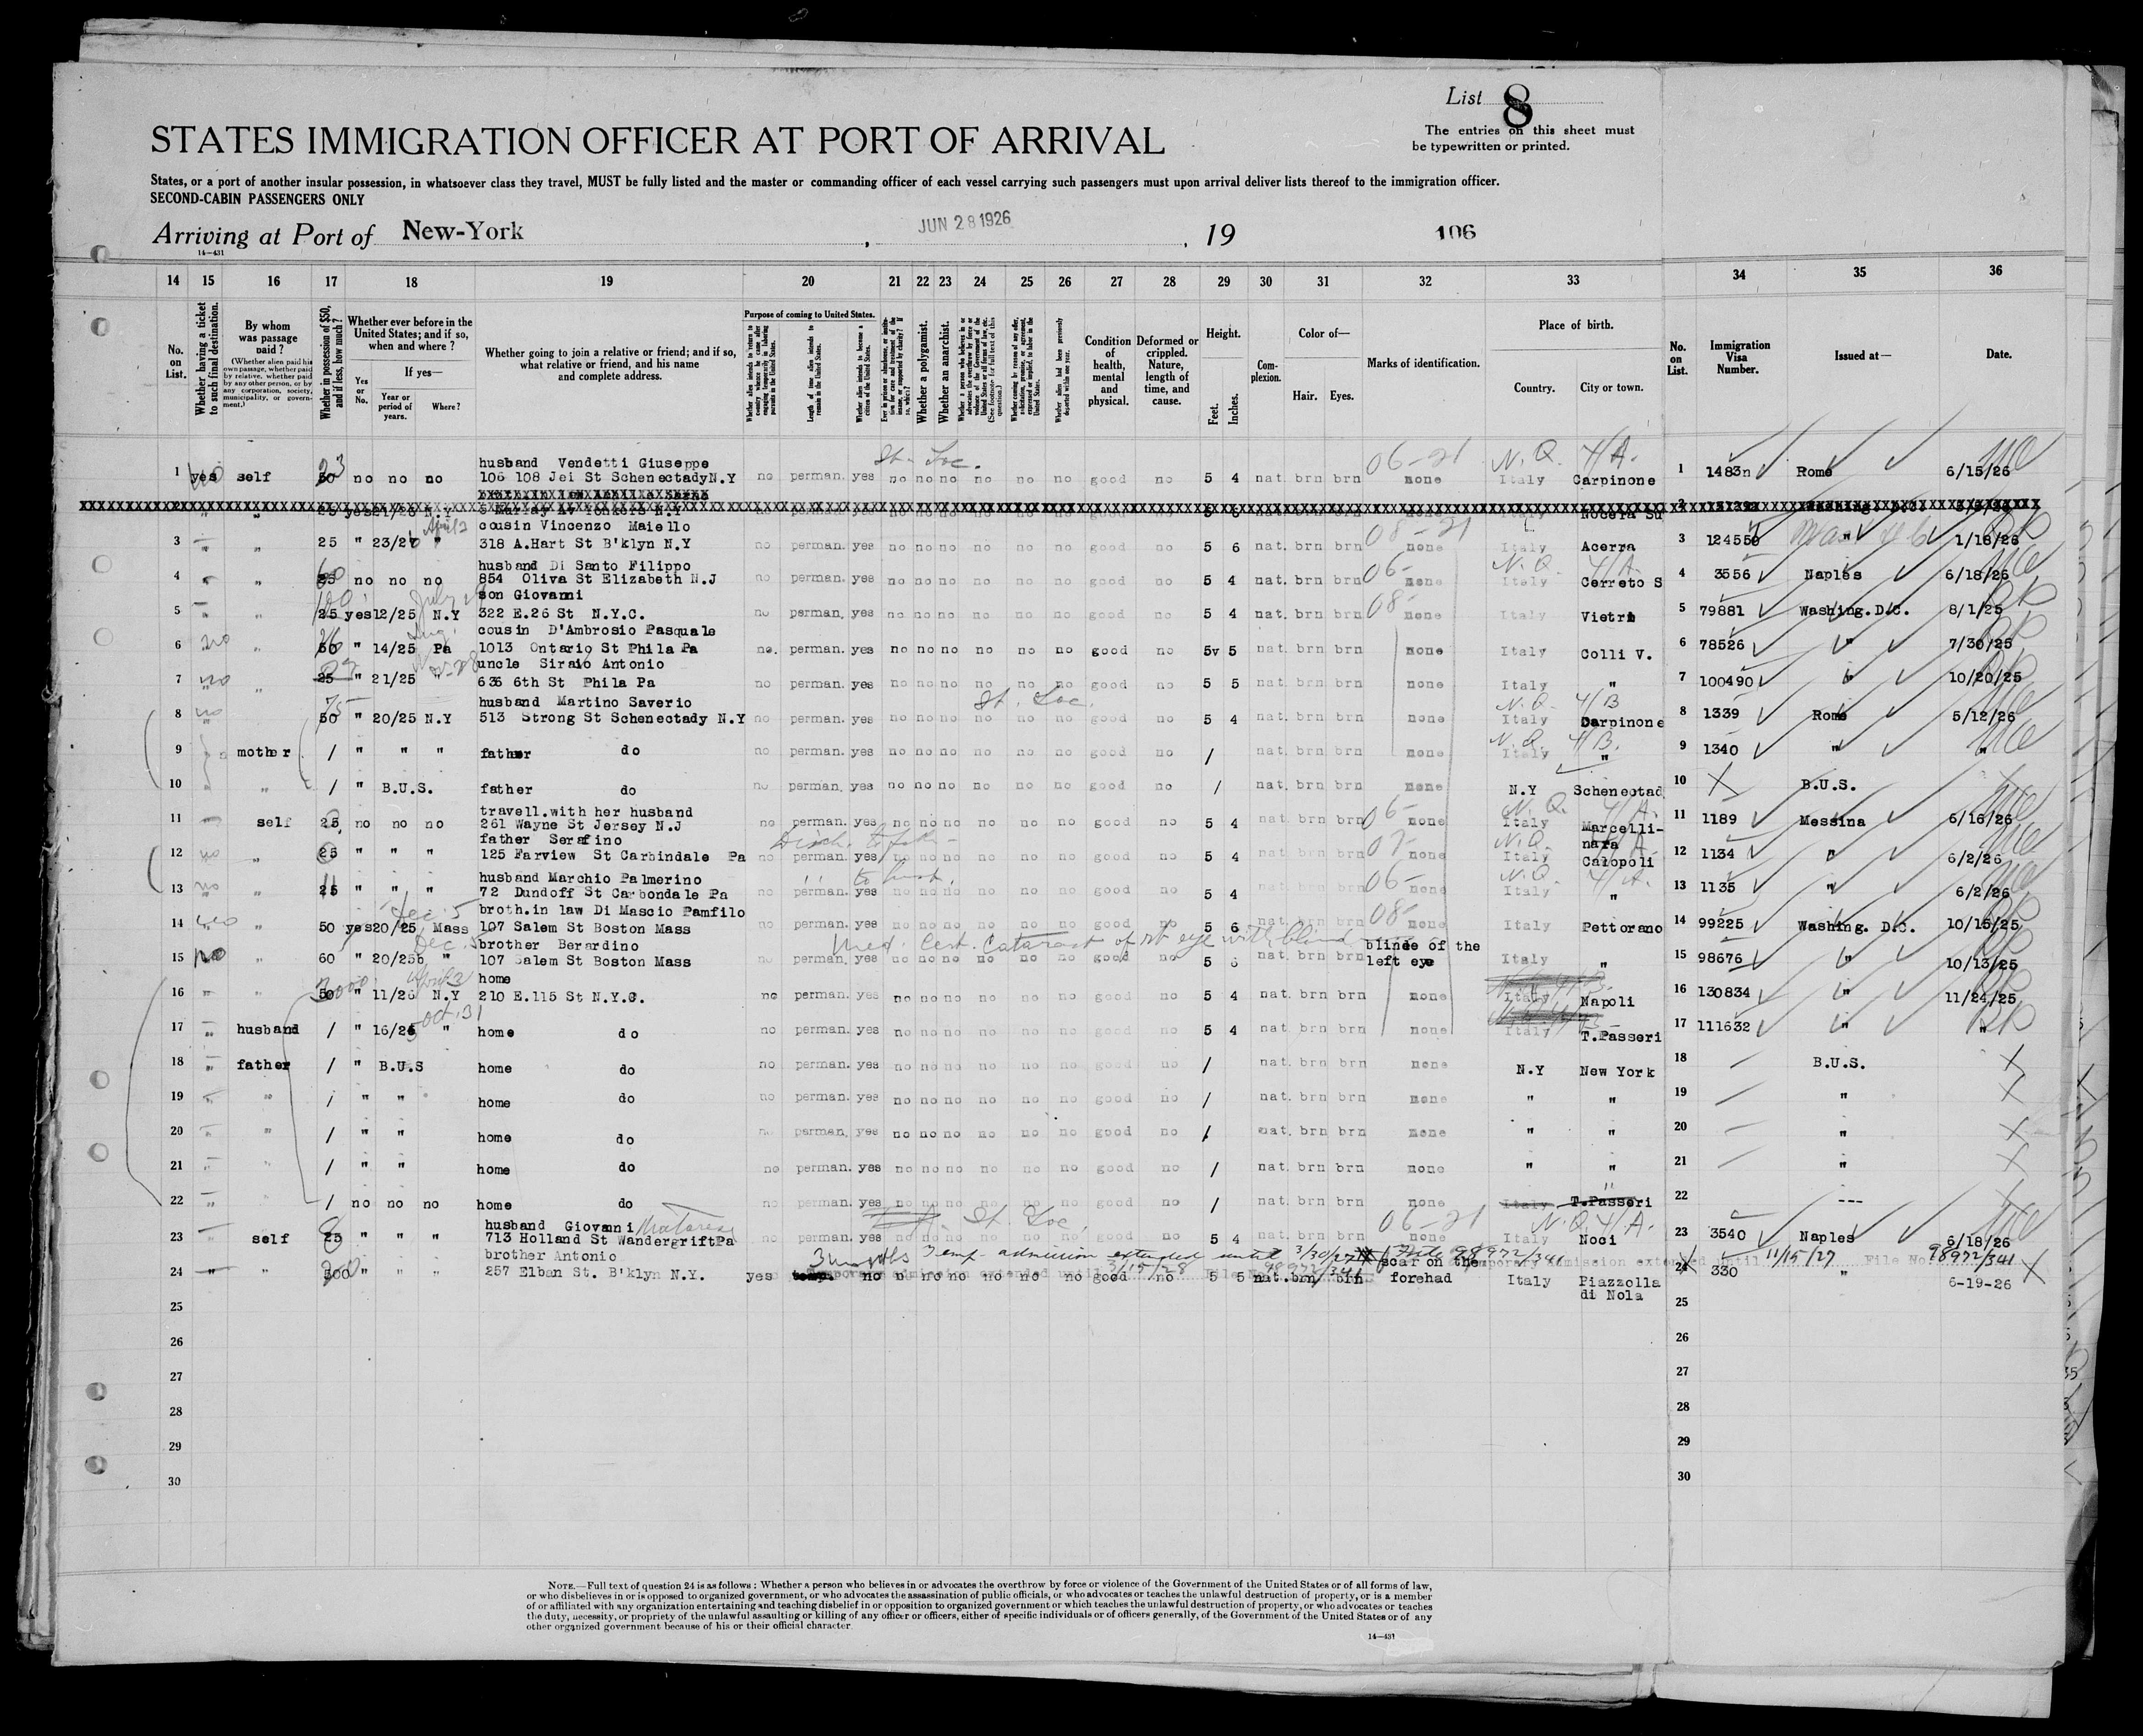 List 8
The entries on this sheet must
be typewritten or printed.
STATES IMMIGRATION OFFICER AT PORT OF ARRIVAL
States, or a port of another insular possession, in whatsoever class they travel, MUST be fully listed and the master or commanding officer of each vessel carrying such passengers must upon arrival deliver lists thereof to the immigration officer.
SECOND-CABIN PASSENGERS ONLY
Arriving at Port of New-York, JUN 28 1926, 19 106
14—431
14 15 16 17 18 19 20 21 22 23 24 25 26 27 28 29 30 31 32 33 34 35 36
No. on List.
Whether having a ticket to such final destination.
By whom was passage paid?
(Whether alien paid his own passage, whether paid by relative, whether paid by any other person, or by any corporation, society, municipality, or government.)
Whether in possession of $50, and if less, how much?
Whether ever before in the United States; and if so, when and where?
If yes—
Yes or No.
Year or period of years.
Where?
Whether going to join a relative or friend; and if so, what relative or friend, and his name and complete address.
Purpose of coming to United States.
Length of time alien intends to remain in the United States.
Whether alien intends to become a citizen of the United States.
Whether a polygamist.
Whether an anarchist.
Condition of health, mental and physical.
Deformed or crippled. Nature, length of time, and cause.
Height.
Feet.
Inches.
Complexion.
Color of—
Hair. Eyes.
Marks of identification.
Place of birth.
Country. City or town.
No. on List.
Immigration Visa Number.
Issued at—
Date.
St. Loc.
husband Vendetti Giuseppe 06-21 N.Q. 4/A.
1 yes self 50 no no no 106 108 Jei St Schenectady N.Y no perman. yes no no no no no no good no 5 4 nat. brn brn none Italy Carpinone 1 1483n Rome 6/15/26
cousin Vincenzo Maiello 08-21
3 25 " 23/26 " 318 A.Hart St B'klyn N.Y no perman. yes no no no no no no good no 5 6 nat. brn brn none Italy Acerra 3 124559 " 1/16/26
husband Di Santo Filippo 06- N.Q. 4/A.
4 no no no 854 Oliva St Elizabeth N.J no perman. yes no no no no no no good no 5 4 nat. brn brn none Italy Cerreto S 4 3556 Naples 6/18/26
son Giovanni 08-
5 25 yes 12/25 N.Y 322 E.26 St N.Y.C. no perman. yes no no no no no no good no 5 4 nat. brn brn none Italy Vietri 5 79881 Washing.D.C. 8/1/25
cousin D'Ambrosio Pasquale
6 no 50 " 14/25 Pa 1013 Ontario St Phila Pa no. perman. yes no no no no no no good no 5v 5 nat. brn brn none Italy Colli V. 6 78526 " 7/30/25
uncle Siraio Antonio
7 no 25 " 21/25 " 636 6th St Phila Pa no perman. yes no no no no no no good no 5 5 nat. brn brn none Italy " 7 100490 " 10/20/25
husband Martino Saverio St. Loc. N.Q. 4/B
8 no 50 " 20/25 N.Y 513 Strong St Schenectady N.Y no perman. yes no no no no no no good no 5 4 nat. brn brn none Italy Carpinone 8 1339 Rome 5/12/26
N.Q. 4/B.
9 mother / " " " father do no perman. yes no no no no no no good no / nat. brn brn none Italy " 9 1340 " "
10 " / " B.U.S. father do no perman. yes no no no no no no good no / nat. brn brn none N.Y Schenectad 10 B.U.S.
travell.with her husband 06- N.Q. 4/A.
11 self 25 no no no 261 Wayne St Jersey N.J no perman. yes no no no no no no good no 5 4 nat. brn brn none Italy Marcelli-nara 11 1189 Messina 6/16/26
father Serafino N.Q.
12 no " 25 " " " 125 Farview St Carbindale Pa no perman. yes no no no no no no good no 5 4 nat. brn brn none Italy Calopoli 12 1134 " 6/2/26
husband Marchio Palmerino 06- N.Q. 4/A.
13 no " 25 " " " 72 Dundoff St Carbondale Pa no perman. yes no no no no no no good no 5 4 none Italy " 13 1135 " 6/2/26
Dec 5 broth.in law Di Mascio Pamfilo 08-
14 " 50 yes 20/25 Mass 107 Salem St Boston Mass no perman. yes no no no no no no good no 5 6 nat. brn brn none Italy Pettorano 14 99225 Washing. D.C. 10/15/25
Dec 5 brother Berardino Med. Cert. Cataract of rt eye with blind blinde of the
15 no " 60 " 20/25 " 107 Salem St Boston Mass no perman. yes no no no no no no good no 5 6 nat. brn brn left eye Italy " 15 98676 " 10/13/25
home
16 50 " 11/26 N.Y 210 E.115 St N.Y.C. no perman. yes no no no no no no good no 5 4 nat. brn brn none Italy Napoli 16 130834 " 11/24/25
Oct. 31
17 husband / " 16/25 " home do no perman. yes no no no no no no good no 5 4 nat. brn brn none Italy T.Passeri 17 111632 " "
18 father / " B.U.S home do no perman. yes no no no no no no good no / nat. brn brn none N.Y New York 18 B.U.S.
19 " / " " home do no perman. yes no no no no no no good no / nat. brn brn none " " 19 "
20 " / " " home do no perman. yes no no no no no no good no / nat. brn brn none " " 20 "
21 " / " " home do no perman. yes no no no no no no good no / nat. brn brn none " " 21 "
22 " / no no no home do no perman. yes no no no no no no good no / nat. brn brn none Italy T.Passeri 22 ---
husband Giovanni Matarese St. Loc. 06-21 N.Q. 4/A.
23 self 25 " " " 713 Holland St Wandergrift Pa no perman. yes no no no no no no good no 5 4 nat. brn brn none Italy Noci 23 3540 Naples 6/18/26
brother Antonio 3 months Temp. admission extended until 3/30/27 File 98972/341 11/15/27 File No. 98972/341
24 " " 300 " " " 257 Elban St. B'klyn N.Y. yes temp. no no no no no no no good no 5 5 nat. brn brn scar on the forehad Italy Piazzolla di Nola 24 330 " 6-19-26
25 25
26 26
27 27
28 28
29 29
30 30
NOTE.—Full text of question 24 is as follows: Whether a person who believes in or advocates the overthrow by force or violence of the Government of the United States or of all forms of law,
or who disbelieves in or is opposed to organized government, or who advocates the assassination of public officials, or who advocates or teaches the unlawful destruction of property, or is a member
of or affiliated with any organization entertaining and teaching disbelief in or opposition to organized government or which teaches the unlawful destruction of property, or who advocates or teaches
the duty, necessity, or propriety of the unlawful assaulting or killing of any officer or officers, either of specific individuals or of officers generally, of the Government of the United States or of any
other organized government because of his or their official character.
14—431